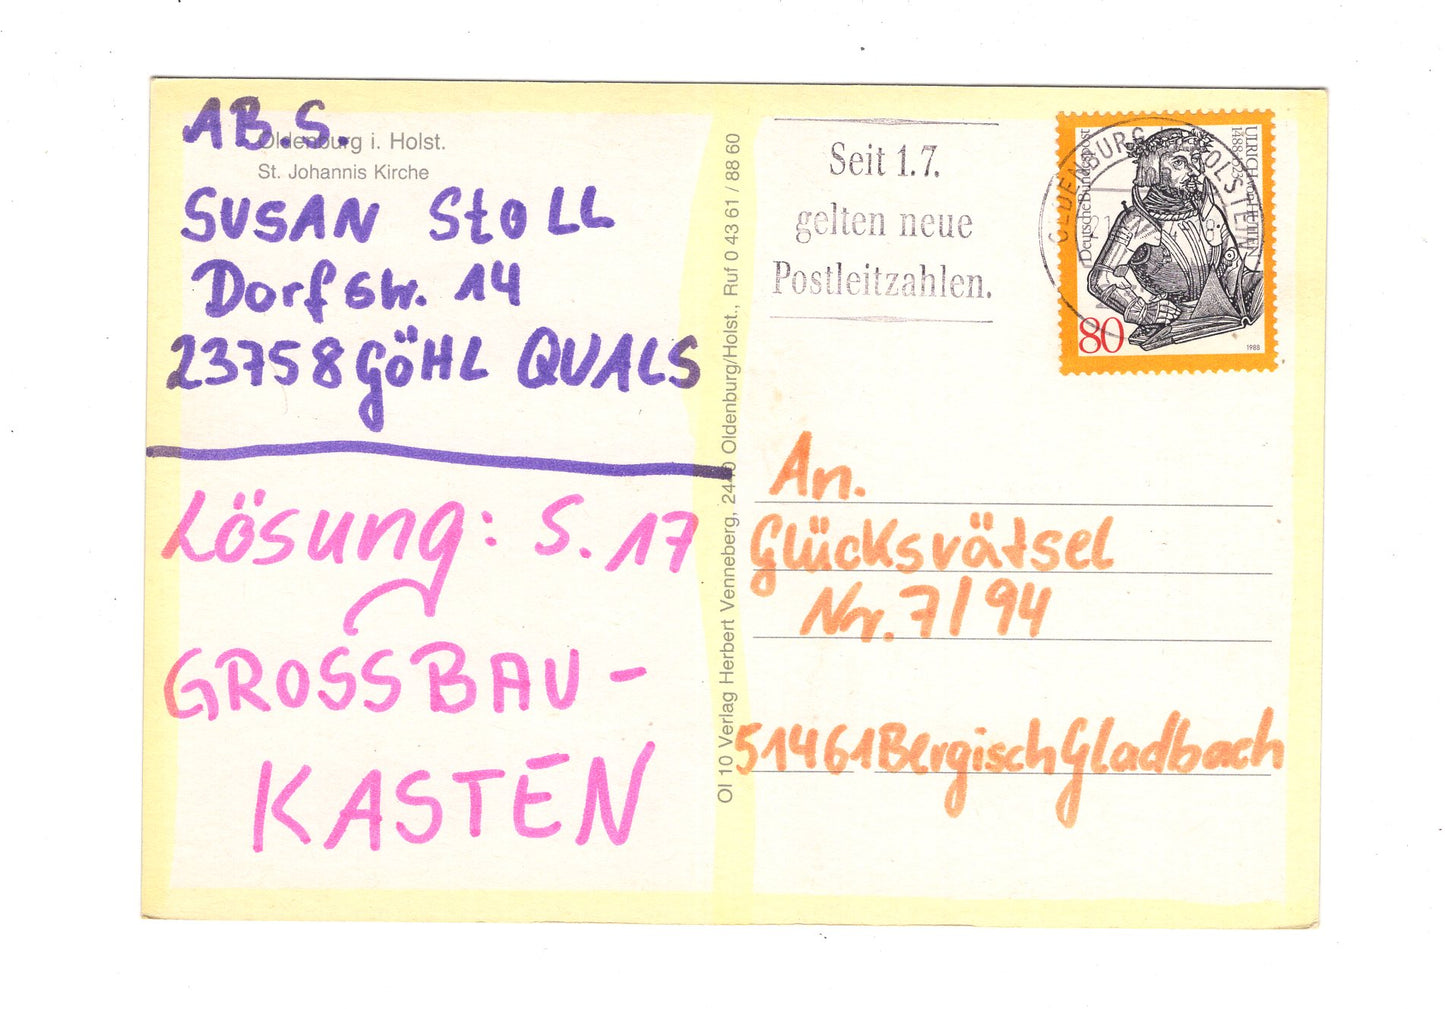 AB.S.
Oldenburg i. Holst.
St. Johannis Kirche
SUSAN StOLL
Dorfstr. 14
23758 GöHL QUALS
Lösung: S. 17
GROSSBAU-
KASTEN
Ol 10 Verlag Herbert Venneberg, 2440 Oldenburg/Holst., Ruf 0 43 61 / 88 60
Seit 1.7.
gelten neue
Postleitzahlen.
OLDENBURG HOLSTEIN
Deutsche Bundespost
ULRICH von HUTTEN
1488-1523
80
1988
An.
Glücksrätsel
Nr. 7/94
51461 Bergisch Gladbach